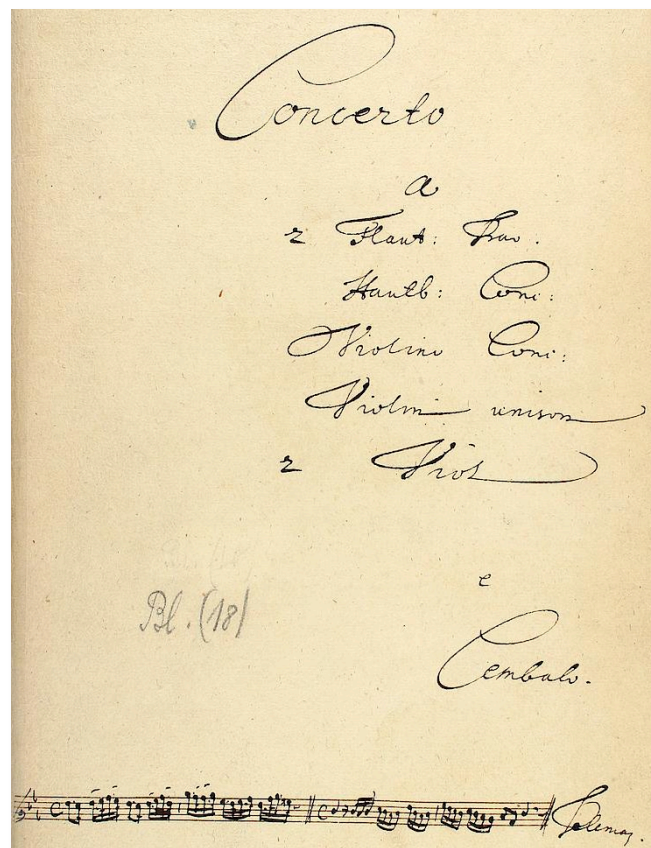 Concerto
a
2 Flaut: Trav.
Hautb: Conc:
Violino Conc:
Violini unison
2 Viol
e
Bl. (18)
Cembalo.
Telemañ.